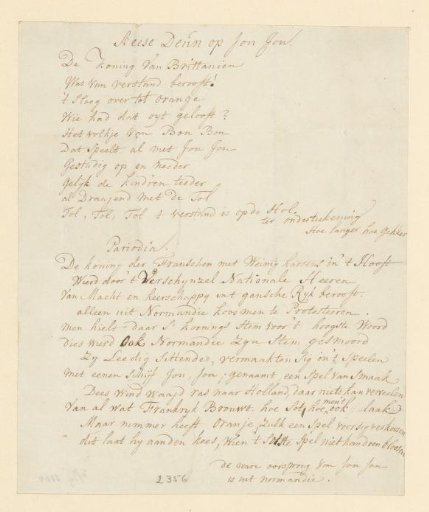 Keise Deun op Jou Jou
De Koning van Brittanien
Was van verstand berooft!
't Sloeg over tot oranje
Wie had dat oyt gelooft?
Het volkje van Bon Bon
Dat Speelt al met Jou Jou
Gestadig op en neder
Gelijk de kindren teeder
al Draajend met De Tol
Tol, Tol, Tol 't verstand is op de Hol.
ter ondertekening
Hoe langer hoe Gekker
Parodia.
De koning der Franschen met Weinig harsens in 't Hooft
Wierd door 't Verschynzel Nationale Heeren
Van Macht en heerschappy in't gansche Ryk berooft.
alleen uit Normandie kwos men te Protesteren.
Men hielt daar 's konings Stem voor 't hoogste Woord
Dies wierd Ook Normandie Zyn Stem gesmoord
Zy Leedig Sittende, vermaakten sig in 't Speelen
Met eenen Schijf Jou, Jou, genaamt een Spel van Smaak
Dees Wind waajd ras naar Holland, daar niets kan verveelen
Van al wat Frankryk Brouwt. hoe Sot, hoe ook laak
Maar nimmer heeft Oranje Zulk een Spel
dit laat hy aanden kees, Wien 't Spel niet
de ware oorsprong van Jou Jou
is uit normandie.
2356